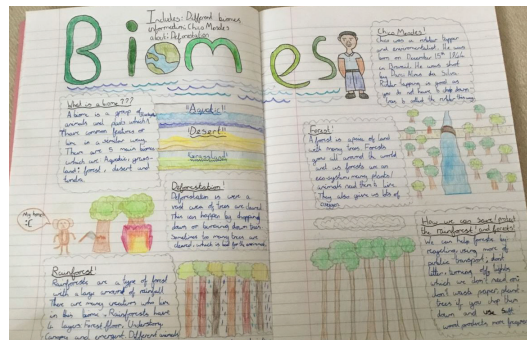 Biomes
Includes: Different biomes
information; Chico Mendes
about; Deforestation
What is a biome???
A biome is a group of
animals and plants which
common features or
live in a similar way.
There are 5 main biomes
which are: Aquatic; grass-
land; forest; desert and
tundra.
"Aquatic!!
!Desert!!
Grassland!
Deforestation!
Deforestation is when a
area of trees are cleared.
This can happen by chopping
down or burning down trees.
Sometimes too many trees are
cleared, which is bad for the environment.
My home
:(
Rainforest!
Rainforests are a type of forest
with a large amount of rainfall.
There are many creatures who live
in this biome. Rainforests have
4 layers Forest floor, Understory,
Canopy and emergent. Different animals
Chico Mendes!
Chico was a rubber tapper
and environmentalist. He was
born on December 15th 1944
in Brazil. He was shot
by
Rubber tapping is good as
you do not have to chop down
trees to collect the rubber
Forest!
A forest is a piece of land
with many trees. Forests
grow all around the world
and as forests are an
eco-system many plants/
animals need them to live.
They also give us lots of
oxygen.
How we can save/protect
the rainforest and forests!
We can help forests by
recycling; using more of
public transport; don't
litter; turning off lights
which we don't need on;
don't waste paper; plant
trees if you chop them
down and use
wood products more